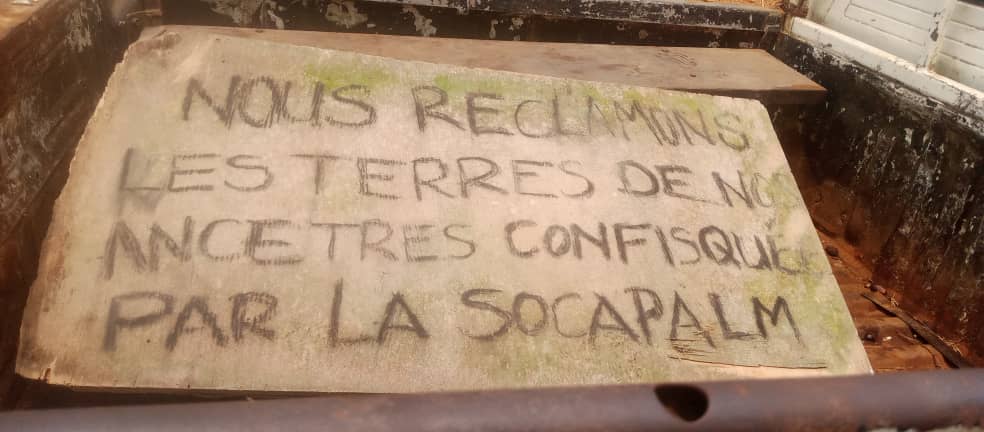 NOUS RECLAMONS
LES TERRES DE NOS
ANCETRES CONFISQUÉES
PAR LA SOCAPALM